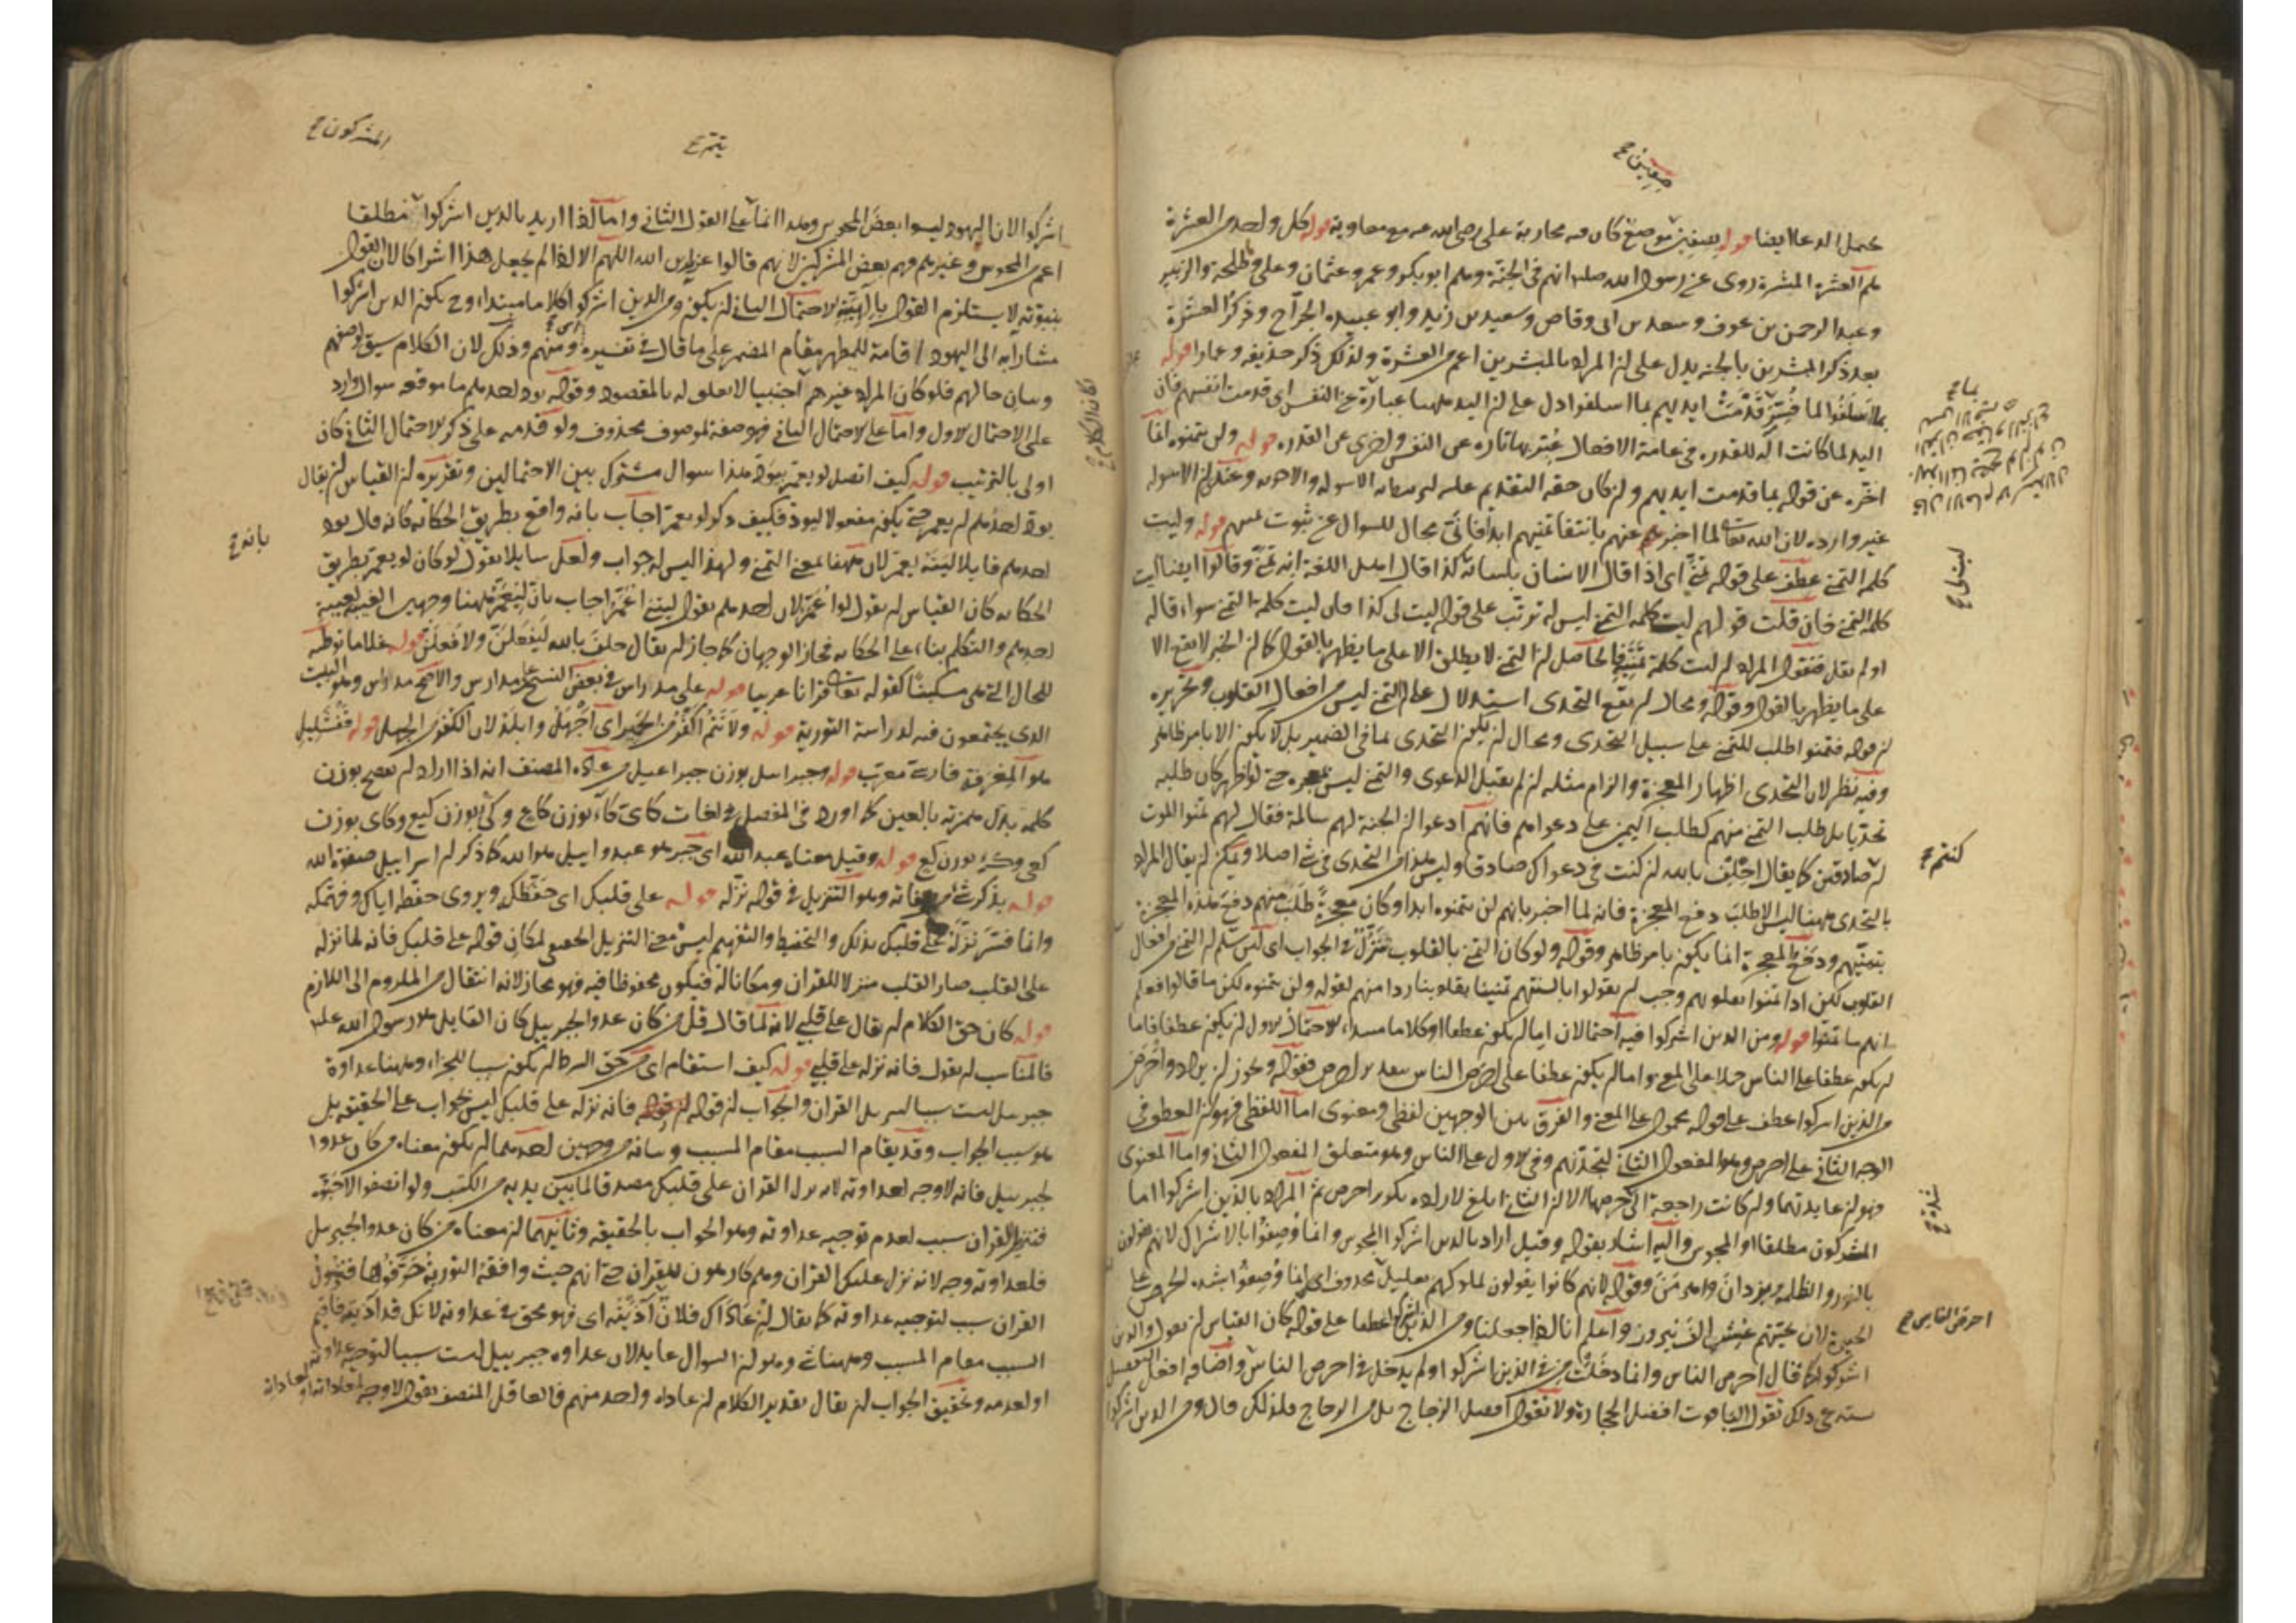 صفين ح
يحتمل الدعا ايضا قوله بصفين موضع كان فيه محاربة على رضى الله عنه مع معاوية قوله كل واحد من العشرة
هم العشرة المبشرة روى عن رسول الله صلعم انهم فى الجنة وهم ابو بكر وعمر وعثمان وعلى وطلحة والزبير
وعبد الرحمن بن عوف وسعد بن ابى وقاص وسعيد بن زيد وابو عبيدة الجراح وذكر العشرة
بعد ذكر المبشرين بالجنة يدل على ان المراد بالمبشرين اعم من العشرة ولذلك ذكر حذيفة وعمارا قوله
بما اسلفوا لما فسر قدمت ايديهم بما اسلفوا دل على ان اليد ههنا عبارة عن النفس اى قدمت انفسهم فان
اليد لما كانت آلة للقدرة فى عامة الافعال عبر بها تارة عن النفس واخرى عن القدرة قوله ولن يتمنوه انما
اخره عن قوله بما قدمت ايديهم وان كان حقه التقديم عليه
غير وارده لان الله تعالى لما اخبر عنهم بانتفا تمنيهم ابدا فاى مجال للسوال عن ثبوت قوله وليت
كلمة التمنى عطف على قوله تمنى اى اذا قال الانسان بلسانه كذا قال اهل اللغة انه تمنى وقالوا ايضا ليت
كلمة التمنى فان قلت قولهم ليت كلمة التمنى ليس له ترتب على قوله ليت لى كذا فان ليت كلمة التمنى سواء قاله
او لم يقل فنقول المراد ان ليت كلمة تمنى فالحاصل ان التمنى لا يطلق الا على ما يظهر بالقول كما ان الخبر لا يقع الا
على ما يظهر بالقول وقوله ومحال ان يقع التحدى استدلال على ان التمنى ليس من افعال القلوب وتحريره
ان قوله فتمنوا طلب للتمنى على سبيل التحدى ومحال ان يكون التحدى بما فى الضمير بل لا يكون الا بامر ظاهر
وفيه نظر لان التحدى اظهار المعجزة والزام مثله ان لم يقبل الدعوى والتمنى ليس بمعجزة حتى لو اظهر كان طلبه
تحديا بل طلب التمنى منهم كطلب اليمين على دعواهم فانهم ادعوا ان الجنة لهم سالمة فقال لهم تمنوا الموت
ان صادقين كما يقال احلف بالله ان كنت فى دعواك صادقا وليس هذا من التحدى فى شى اصلا ويمكن ان يقال المراد
بالتحدى ههنا ليس الا طلب دفع المعجزة فانه لما اخبر بانهم لن يتمنوه ابدا وكان معجزة طلب منهم دفع هذه المعجزة
بتمنيهم ودفع المعجزة انما يكون بامر ظاهر وقوله ولو كان التمنى بالقلوب تنزل فى الجواب اى لئن سلم ان التمنى من افعال
القلوب لكن اذا تمنوا بقلوبهم وجب ان يقولوا بالسنتهم تمنينا بقلوبنا ردا منهم لقوله ولن يتمنوه لكن ما قالوا فعلم
انهم ما تمنوا قوله ومن الذين اشركوا فيه احتمالان اما ان يكون عطفا او كلاما مبتدا الاحتمال الاول ان يكون عطفا فاما
ان يكون عطفا على الناس حملا على المعنى واما ان يكون عطفا على احرص الناس بتقدير احرص فقوله ويجوز ان يراد واحرص
من الذين اشركوا عطف على قوله محمول على المعنى والفرق بين الوجهين لفظى ومعنوى اما اللفظى فهو ان العطف فى
الوجه الثانى على احرص وهو المفعول الثانى لتجدنهم وفى الاول على الناس وهو متعلق المفعول الثانى واما المعنوى
فهو ان فايدتهما وان كانت راجعة الى حرصهم الا ان الثانى ابلغ لارادة تكرر احرص ثم المراد بالذين اشركوا اما
المشركون مطلقا او المجوس واليه اشار بقوله وقيل اراد بالذين اشركوا المجوس وانما وصفوا بالاشراك لانهم يقولون
بالنور والظلمة ويزدان واهرمن وقوله لانهم كانوا يقولون لملوكهم تعليل محذوف اى انما وصفوا بشدة الحرص على
الحيوة لان تحيتهم عش الف نيروز واعلم انا اذا جعلنا ومن الذين اشركوا عطفا على قوله كان القياس ان يقول والذين
اشركوا كما قال احرص الناس وانما دخلت من فى الذين اشركوا ولم يدخل فى احرص الناس واضافة افعل التفضيل
ذلك تقول الياقوت افضل الحجارة ولا تقول افضل الزجاج بل من الزجاج فلذلك قال ومن الذين اشركوا
ليت لى ح
كنتم ح
احرص الناس ح
المشركون ح
اشركوا الا ان اليهود ليسوا بعض المجوس وهذا انما على القول الثانى واما اذا اريد بالذين اشركوا مطلقا
اعم من المجوس وغيرهم فهم بعض المشركين لانهم قالوا عزير بن الله اللهم الا اذا لم يجعل هذا اشراكا لان القول
ببنوته لا يستلزم القول بالهيته الاحتمال الثانى ان يكون ومن الذين اشركوا كلاما مبتداء وح يكون الذين اشركوا
مشارا به الى اليهود اقامة للمظهر مقام المضمر على ما قال فى تفسيره ومنهم وذلك لان الكلام سيق لوصفهم
وبيان حالهم فلو كان المراد غيرهم اجنبيا لا تعلق له بالمقصود وقوله يود احدهم ما موقعه سوال وارد
على الاحتمال الاول واما على الاحتمال الثانى فهو صفة لموصوف محذوف ولو قدمه على ذكر الاحتمال الثانى كان
اولى بالترتيب قوله كيف اتصل لو يعمر بيود هذا سوال مشترك بين الاحتمالين وتقريره ان القياس ان يقال
يود احدهم ان يعمر حتى يكون مفعولا ليود فكيف ذكر لو يعمر اجاب بانه واقع بطريق الحكاية كانه قال يود
احدهم قايلا ليته يعمر لان لو ههنا بمعنى التمنى ولهذا ليس له جواب ولعل سايلا يقول لو كان لو يعمر بطريق
الحكاية كان القياس ان يقول لو اعمر لان احدهم يقول ليتنى اعمر اجاب بان ليعمر ههنا وجهين الغيبة لغيبة
احدهم والتكلم بناء على الحكاية فجاز الوجهان كما جاز ان يقال حلف بالله ليفعلن ولافعلن قوله غلاما توطئة
للحال التى هى مسكينا كقوله تعالى قرآنا عربيا قوله على مدراس فى بعض النسخ على مدارس والاصح مدراس وهو البيت
الذى يجتمعون فيه لدراسة التورية قوله ولانتم اكفر من الحمير اى اجهل وابلد لان الكفر من الجهل قوله قفشليل
هو المغرفة فارسى معرب قوله وجبرائيل بوزن جبراعيل من عادة المصنف انه اذا اراد ان يصحح بوزن
كلمة بدل همزته بالعين كما اورد فى المفصل فى لغات كاى كاء بوزن كاع وكى بوزن كيع وكاى بوزن
كعى وكئ بوزن كع قوله وقيل معناه عبد الله اى جبر هو عبد وايل هو الله كما ذكر ان اسراييل صفوة الله
قوله بذكر شى من صفاته وهو التنزيل فى قوله نزله قوله على قلبك اى حفظك ويروى حفظه اياك وفهمكه
وانما فسر نزله على قلبك بذلك والتحفيظ والتفهيم ليس معنى التنزيل الحقيقى لمكان قوله على قلبك فانه لما نزله
على القلب صار القلب منزلا للقران ومكانا له فيكون محفوظا فيه وهو مجاز لانه انتقال من الملزوم الى اللازم
قوله كان حق الكلام ان يقال على قلبى لانه لما قال قل من كان عدوا لجبريل كان القايل هو رسول الله
فالمناسب ان يقول فانه نزله على قلبى قوله كيف استقام اى من حق الشرط ان يكون سببا للجزاء وههنا عداوة
جبريل ليست سببا لتنزيل القران والجواب ان قوله فانه نزله على قلبك ليس بجواب على الحقيقة بل
هو سبب الجواب وقد يقام السبب مقام المسبب وبيانه من وجهين احدهما ان يكون معناه من كان عدوا
لجبريل فانه لا وجه لعداوته لانه نزل القران على قلبك مصدقا لما بين يديه من الكتب ولو انصفوا لاحبوه
فتنزيل القران سبب لعدم توجيه عداوته وهو الجواب بالحقيقة وثانيهما ان معناه من كان عدوا لجبريل
فلعداوته وجه لانه نزل عليك القران وهم كارهون للقران حتى انهم حيث وافقه التورية حرفوها فنزول
القران سبب لتوجيه عداوته كما يقال ان عاداك فلان آذيته اى فهو محق فى عداوته لانك قد آذيته فاقيم
السبب مقام المسبب وههنا شى وهو ان السوال عايد لان عداوة جبريل ليست سببا لتوجيه عداوته
او لعدمه وتحقيق الجواب ان يقال تقدير الكلام ان عاداه واحد منهم فالعاقل المنصف يقول لا وجه لمعاداته
بانه ح